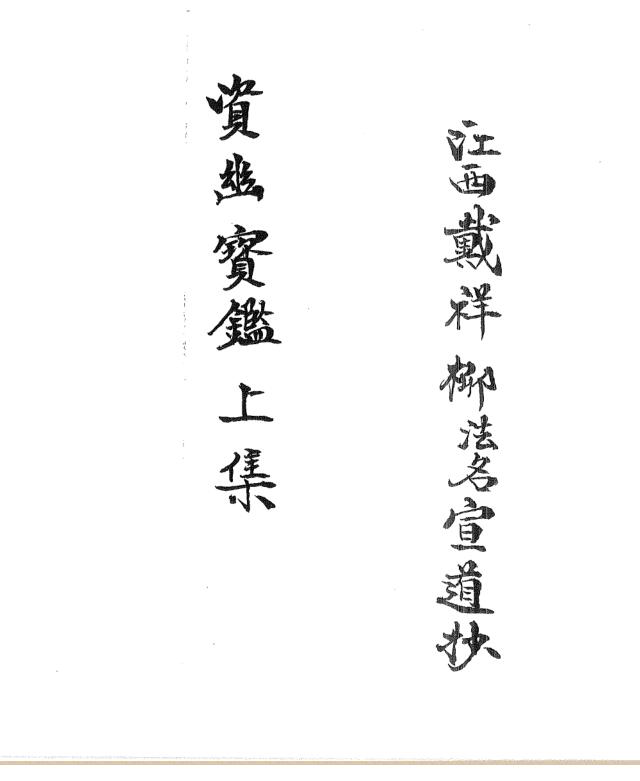 江西戴祥柳法名宣道抄
資幽寳鑑上集